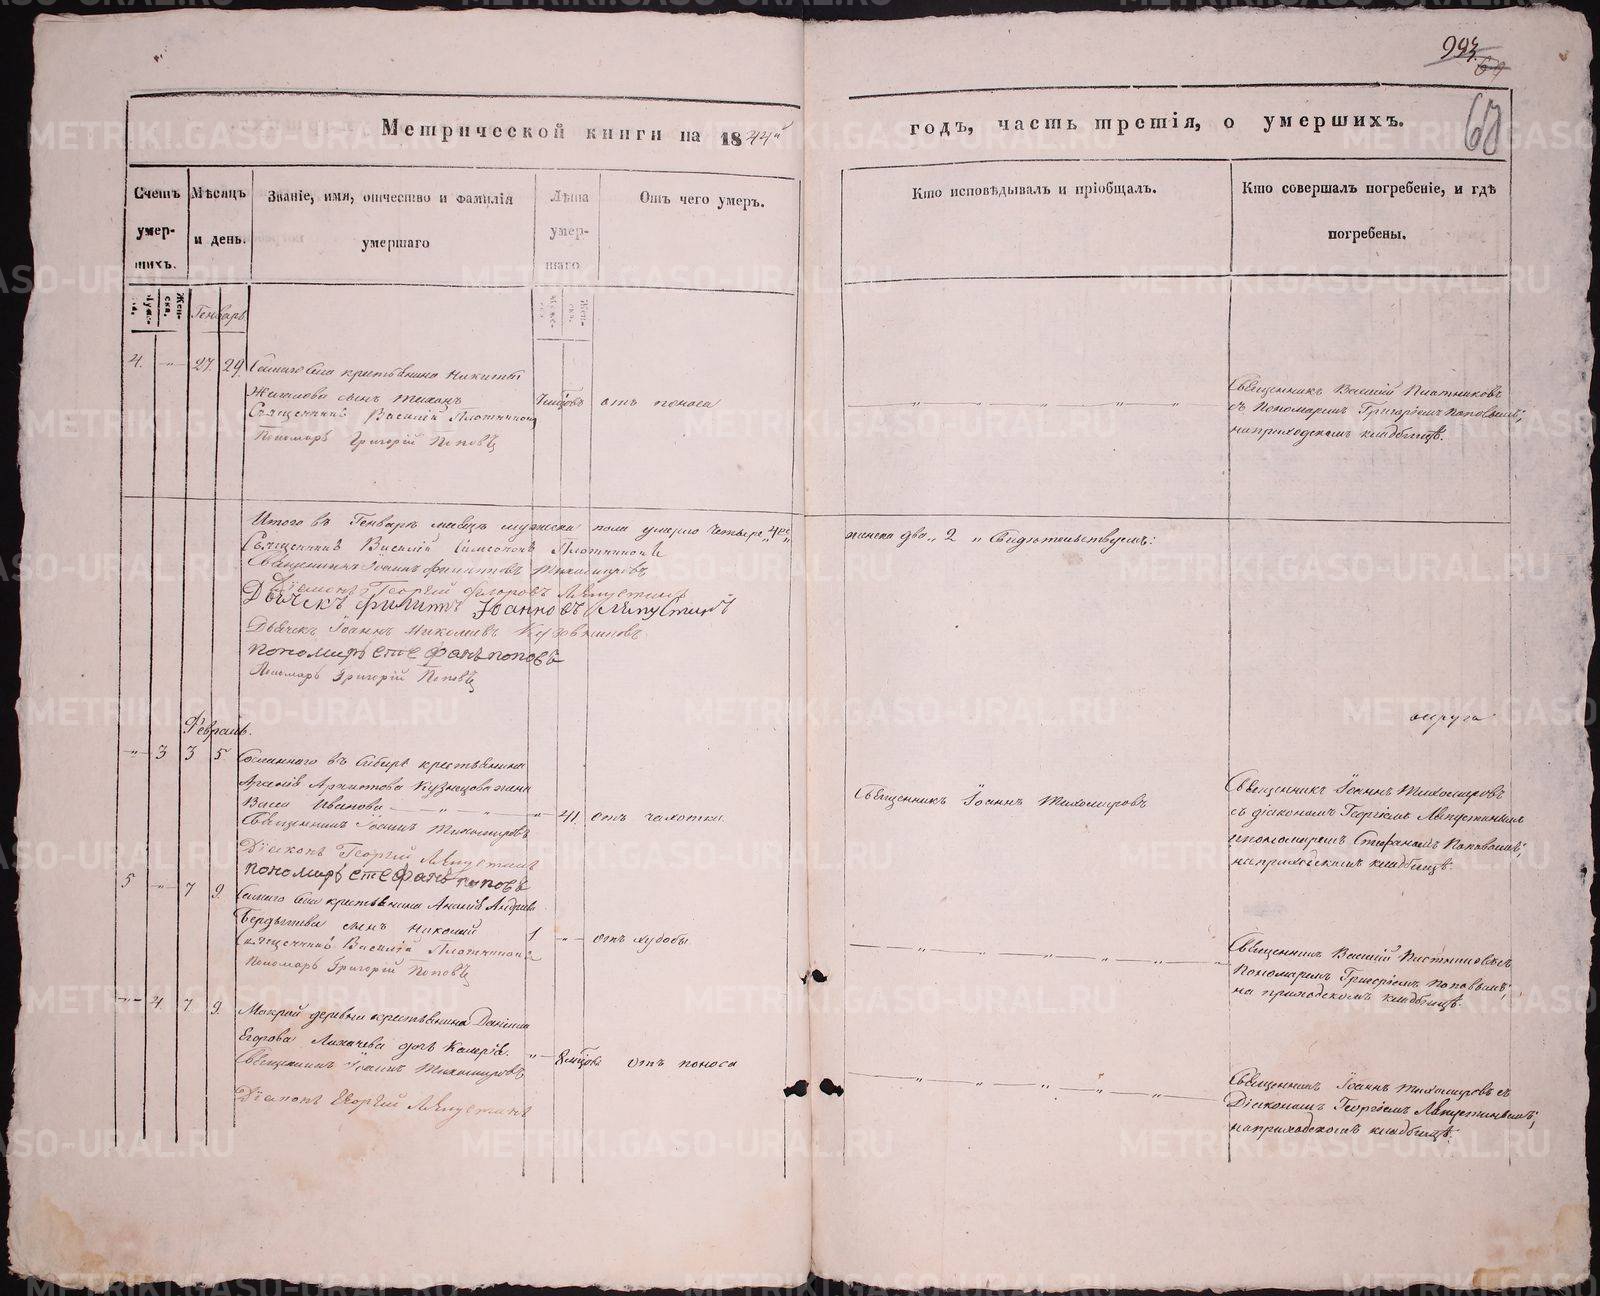 993.
69
68
Метрической книги на 1844й
годъ, часть третія, о умершихъ.
Счетъ умер- шихъ.
Мѣсяцъ и день.
Званіе, имя, отчество и фамилія умершаго
Лѣта умер- шаго
Отъ чего умеръ.
Кто исповѣдывалъ и пріобщалъ.
Кто совершалъ погребеніе, и гдѣ погребены.
Муже- ска.
Жен- ска.
Генварь
Муже- ска.
Жен- ска.
4. 27. 29. крестьянина Никиты
сынъ Тихонъ
отъ поноса
Священникъ Василій Плотниковъ
Пономарь Григорій Поповъ
Священникъ Василій Плотниковъ
съ Пономаремъ Григоріемъ Поповымъ;
на приходскомъ кладбищѣ.
Итого въ Генварѣ мѣсяцѣ мужеска пола умерло четыре „4ре„
женска два „ 2 „ Свидѣтельствуемъ:
Священникъ Василій Симеоновъ Плотниковъ
Священникъ Іоаннъ Филипповъ Тихомировъ
Діаконъ Георгій Ляпустинъ
Дьячекъ Филиппъ Іоанновъ Ляпустинъ
Дьячекъ Іоаннъ Николаевъ
Пономарь Стефанъ Поповъ
Пономарь Григорій Поповъ
Февраль.
округа
„ 3 3 5 въ Сибирь крестьянина
Кузнецова жена
Васса Иванова
„ 41. отъ чахотки
Священникъ Іоаннъ Тихомировъ
Діаконъ Георгій Ляпустинъ
Пономарь Стефанъ Поповъ
Священникъ Іоаннъ Тихомировъ
Священникъ Іоаннъ Тихомировъ
съ діакономъ Георгіемъ Ляпустинымъ
и пономаремъ Стефаномъ Поповымъ;
на приходскомъ кладбищѣ.
5 „ 7 9. крестьянина
сынъ Николай
1 „ отъ худобы
Священникъ Василій Плотниковъ
Пономарь Григорій Поповъ
Священникъ Василій Плотниковъ съ
Пономаремъ Григоріемъ Поповымъ;
на приходскомъ кладбищѣ.
„ 4 7 9. Мокрой деревни крестьянина Даніила
Егорова Лихачева дочь
„ 8 отъ поноса
Священникъ Іоаннъ Тихомировъ
Діаконъ Георгій Ляпустинъ
Священникъ Іоаннъ Тихомировъ съ
Діакономъ Георгіемъ Ляпустинымъ;
на приходскомъ кладбищѣ.
METRIKI.GASO-URAL.RU